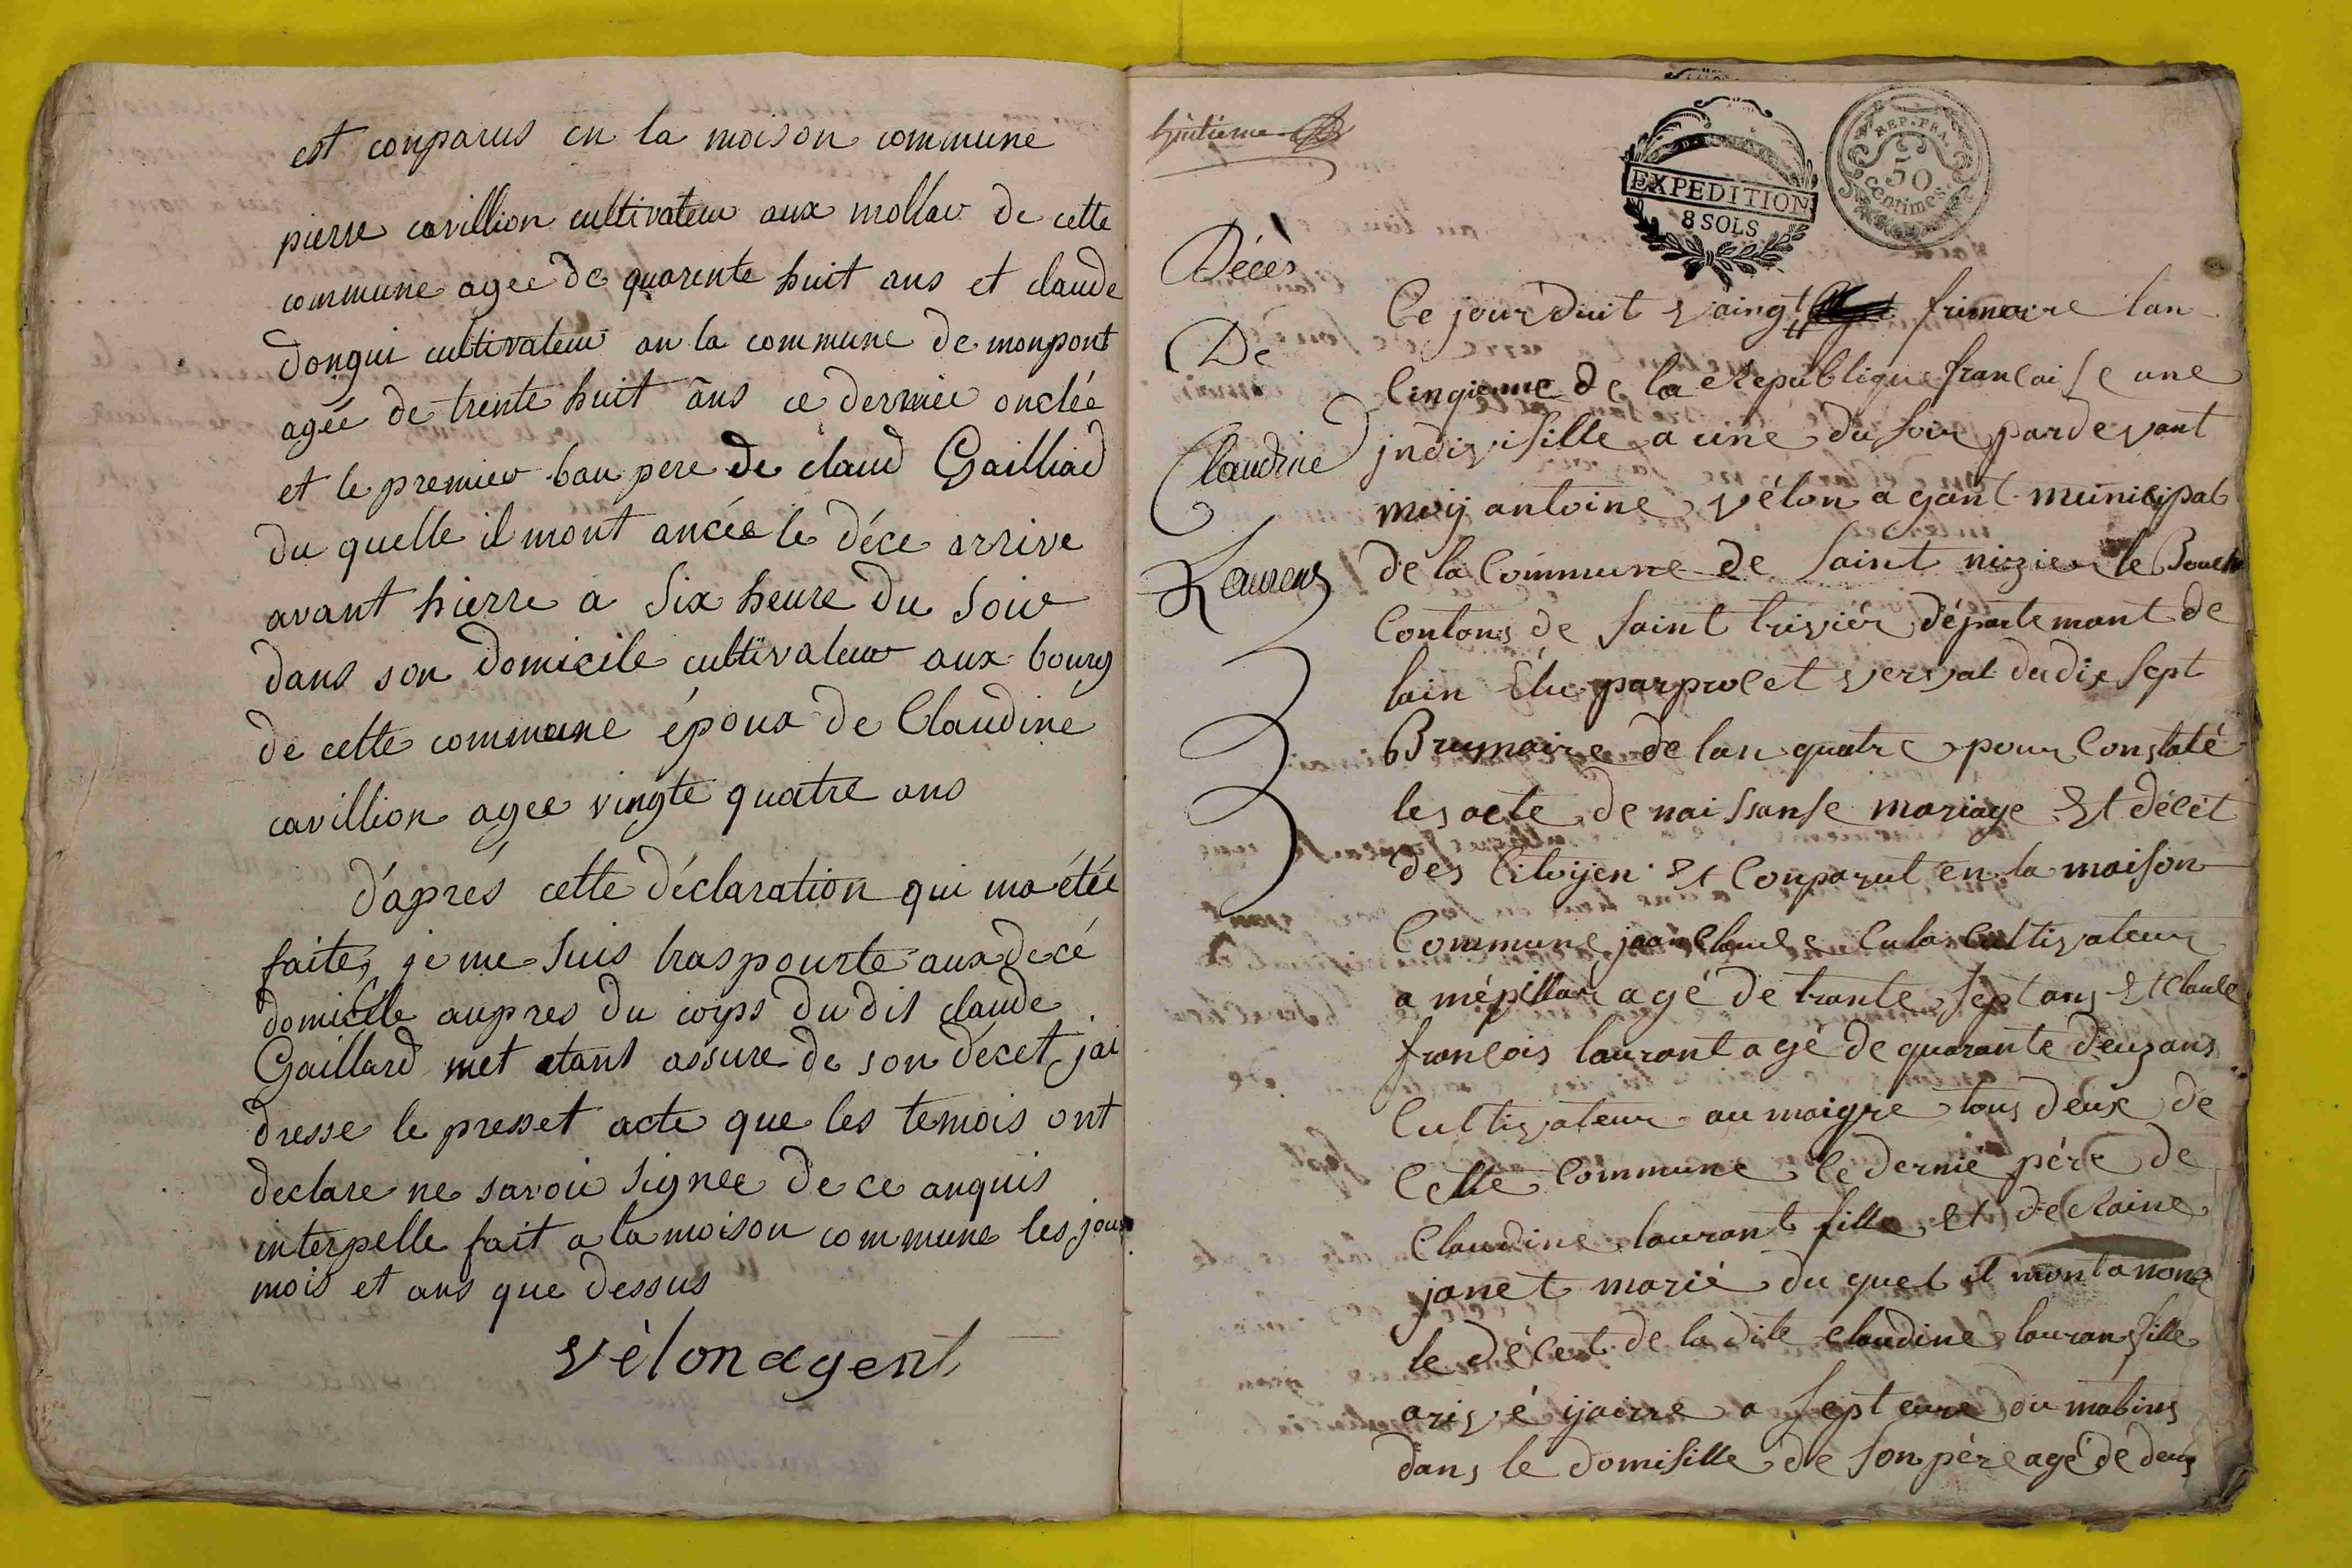 est conparus en la moison commune
pierre cavillion cultivateur aux mollar de cette
commune agee de quarente huit ans et claude
dongui cultivateur an la commune de monpont
agée de trente huit ans ce dernier onclée
et le premier bau pere de claud Gailliad
du quelle il mont ancée le déce arrive
avant hierre a six heure du soir
dans son domicile cultivateur aux bourg
de cette commune époux de Claudine
cavillion agee vingte quatre ans
d'aprés cette déclaration qui ma étée
faite, je me suis traspourte aux decé
domicile aupres du corps du dit claude
Gaillard met etant assure de son décet jai
dresse le presset acte que les temois ont
declare ne savoir signee de ce anquis
interpelle fait a la moison commune les jour
mois et ans que dessus
vélon agent
huitieme
EXPEDITION
8 SOLS
REP. FRA.
50
centimes.
Décès
De
Claudine
Laurens
Ce jourduit vaingt frimaire lan
Cinqieme de la Republique francaise une
jndivisille a une du soir pardevant
moij antoine vélon agant municipal
de la Commune de saint nizier le Bouch
Contons de saint trivièr départemant de
lain Elu par procet verval du dix sept
Brumaire de lan quatre pour Constaté
les acte de naissanse mariage Et décét
des Citoijen Et Conparut en la maison
Commune jean Claude Culas Cultivateur
a mépillar agé de trante sept ans Et Claude
francois laurant agé de quarante deuz ans
Cultivateur au maigre tous deux de
Cette Commune le dernié pére de
Claudine laurant fille Et de Claine
janet marié du quel il mont anonz
le décet de la dite claudine lauran fille
arivé ijairre a sept eure du matins
dans le domisille de son pére agé de deuz